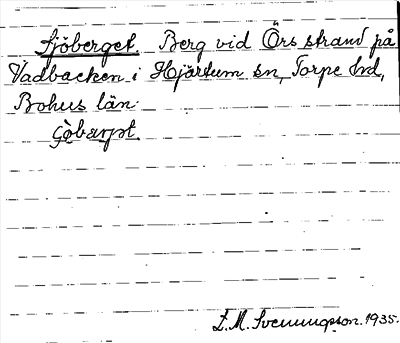 Sjöberget. Berg vid Örs strand på
Vadbacken i Hjärtum sn, Torpe hd,
Bohus län.
Ʒȯbærjət.
L. M. Svenungsson. 1935.